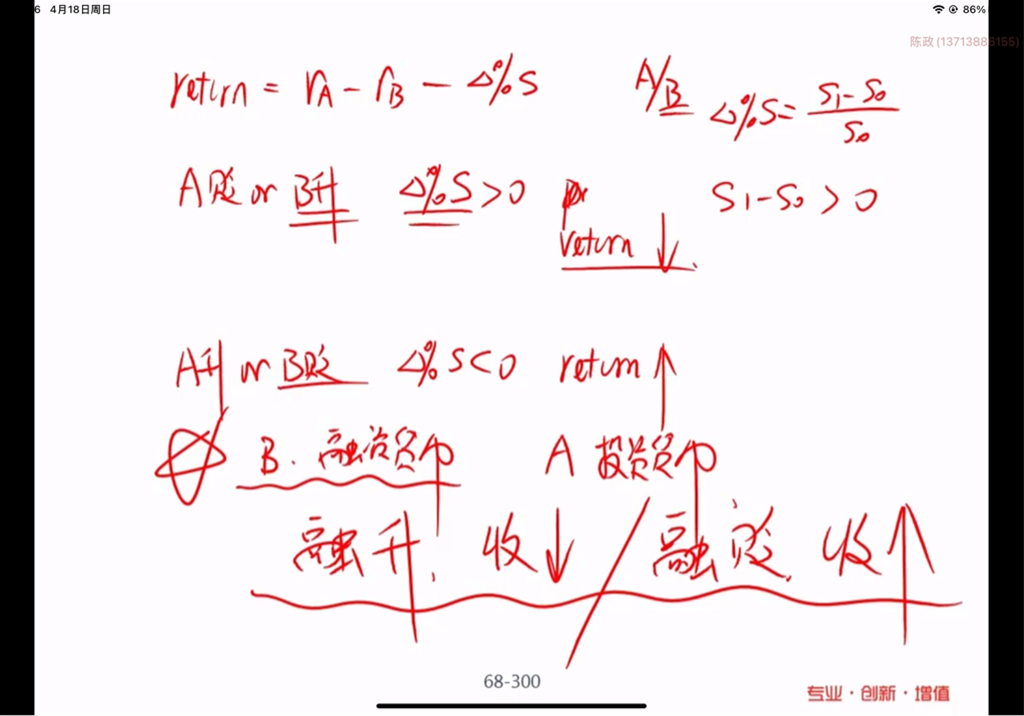 6 4月18日周日
86%
陈政 (13713886155)
return = rA - rB - Δ%S
A/B Δ%S = (S1 - S0) / S0
A贬 or B升 Δ%S > 0 S1 - S0 > 0
return ↓.
A升 or B贬 Δ%S < 0 return ↑
☆ B. 融资货币 A 投资货币
融升, 收↓ / 融贬, 收↑
68-300
专业·创新·增值